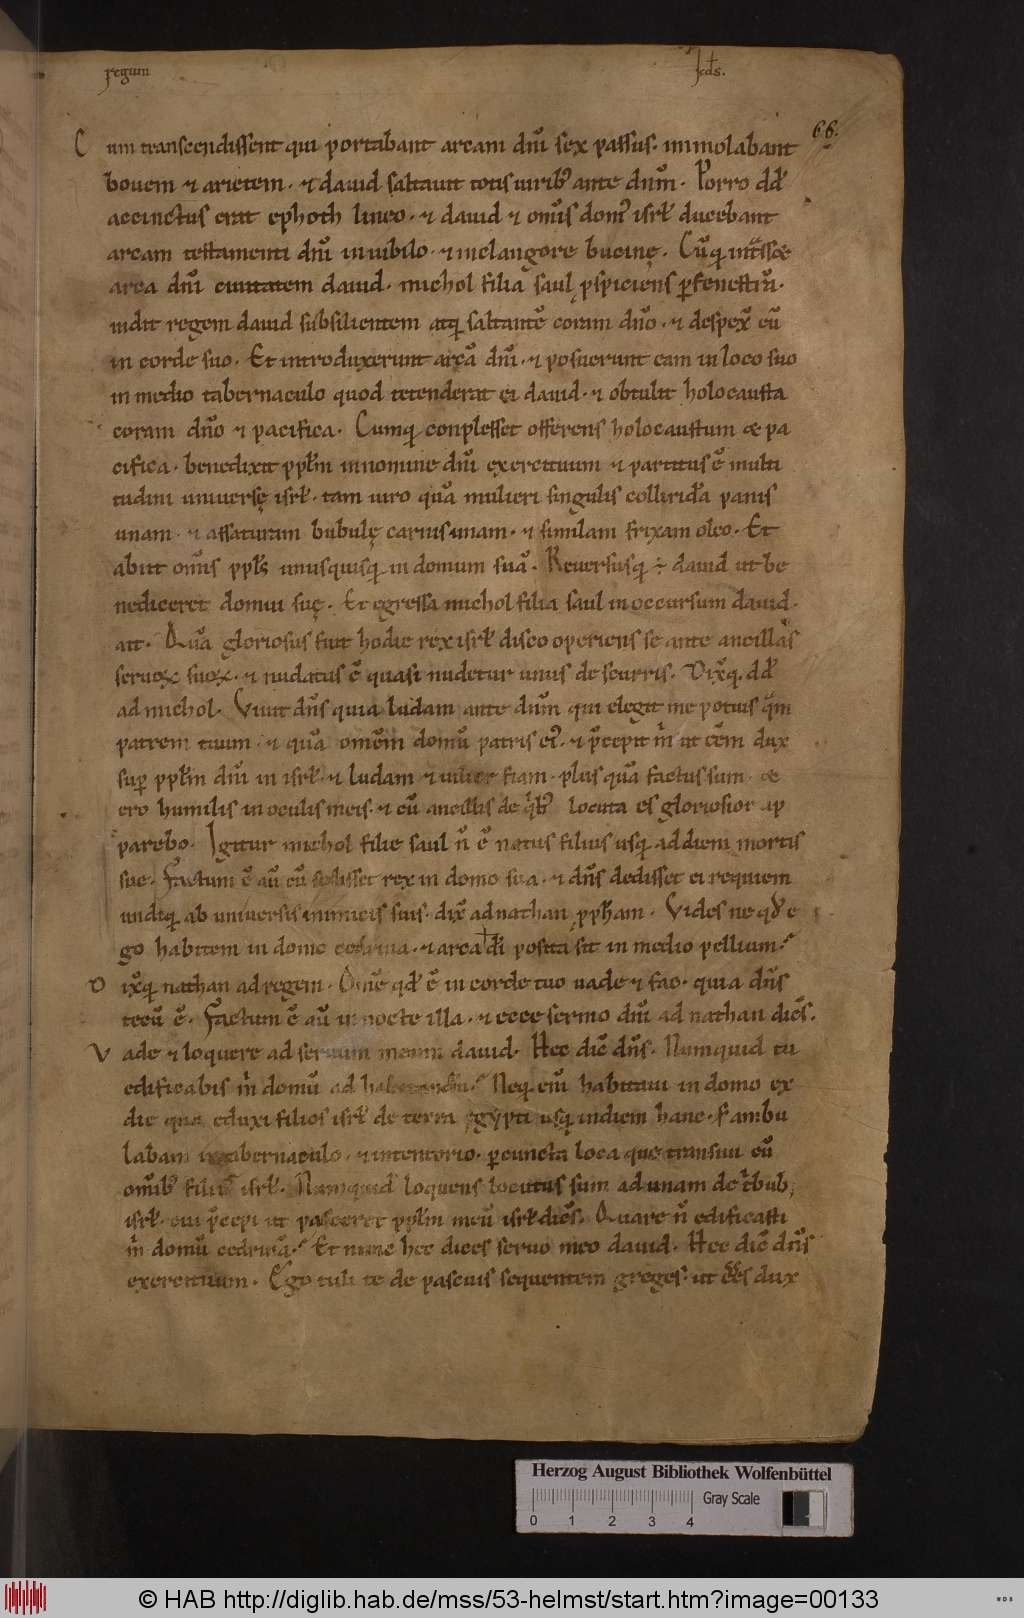 regum scds.
66.
Cum transcendissent qui portabant arcam dnī sex passus. immolabant
bovem & arietem. & david saltavit totis viribꝫ ante dnm̄. Porro dd̄
accinctus erat ephoth lineo. & david & omīs domꝰ isrl̄ ducebant
arcam testamenti dnī in iubilo. & in clangore bucinę. Cūq; intrasset
arca dnī civitatem david. michol filia saul pspiciens p fenestrā.
vidit regem david subsilientem atq; saltantē coram dnō. & despexit eū
in corde suo. Et introduxerunt arcā dnī. & posuerunt eam in loco suo
in medio tabernaculo quod tetenderat ei david. & obtulit holocausta
coram dnō & pacifica. Cumq; conplesset offerens holocaustum & pa
cifica. benedixit pplm̄ in nomine dnī exercituum & partitus ē multi
tudini universę isrl̄. tam viro quā mulieri singulis colliridā panis
unam. & assaturam bubulę carnis unam. & similam frixam oleo. Et
abiit omīs ppls̄ unusquisq; in domum suā. Reversusq; ÷ david ut be
nediceret domui suę. Et egressa michol filia saul in occursum david.
ait. Quā gloriosus fuit hodie rex isrl̄ discooperiens se ante ancillas
servoꝝ suoꝝ. & nudatus ē quasi nudetur unus de scurris. Dixq; dd̄
ad michol. Vivit dns̄ quia ludam ante dnm̄ qui elegit me potius qm̄
patrem tuum. & quā omēm domū patris eiꝰ. & pcepit m̄ ut eēm dux
sup pplm̄ dnī in isrl̄. & ludam & vilior fiam. plus quā factus sum. &
ero humilis in oculis meis. & cū ancillis de qibꝫ locuta es gloriosior ap
parebo. Igitur michol filie saul n̄ ē natus filius usq; ad diem mortis
sue. Factum ē aū cū sedisset rex in domo sua. & dns̄ dedisset ei requiem
undiq; ab universis inimicis suis. dix̄ ad nathan pph̄am. Vides ne qd̄ e
go habitem in domo cedrina. & arca dī posita sit in medio pellium.
Dixq; nathan ad regem. Omē qd̄ ē in corde tuo vade & fac. quia dns̄
tecū ē. Factum ē aū in nocte illa. & ecce sermo dnī ad nathan dicēs.
Vade & loquere ad servum meum david. Hec dic̄ dns̄. Numquid tu
edificabis m̄ domū ad habitandū. Neq; enī habitavi in domo ex
die qua eduxi filios isrl̄ de terra egypti usq; in diem hanc. s; ambu
labam in tabernaculo. & in tentorio. p cuncta loca que transivi cū
omībꝫ filiis isrl̄. Numquid loquens locutus sum ad unam de tribub;
isrl̄. cui pcepi ut pasceret pplm̄ meū isrl̄ dicēs. Quare n̄ edificasti
m̄ domū cedrinā. Et nunc hec dices servo meo david. Hec dic̄ dns̄
exercituum. Ego tuli te de pascuis sequentem greges. ut eēs dux
Herzog August Bibliothek Wolfenbüttel
Gray Scale
0 1 2 3 4
© HAB http://diglib.hab.de/mss/53-helmst/start.htm?image=00133